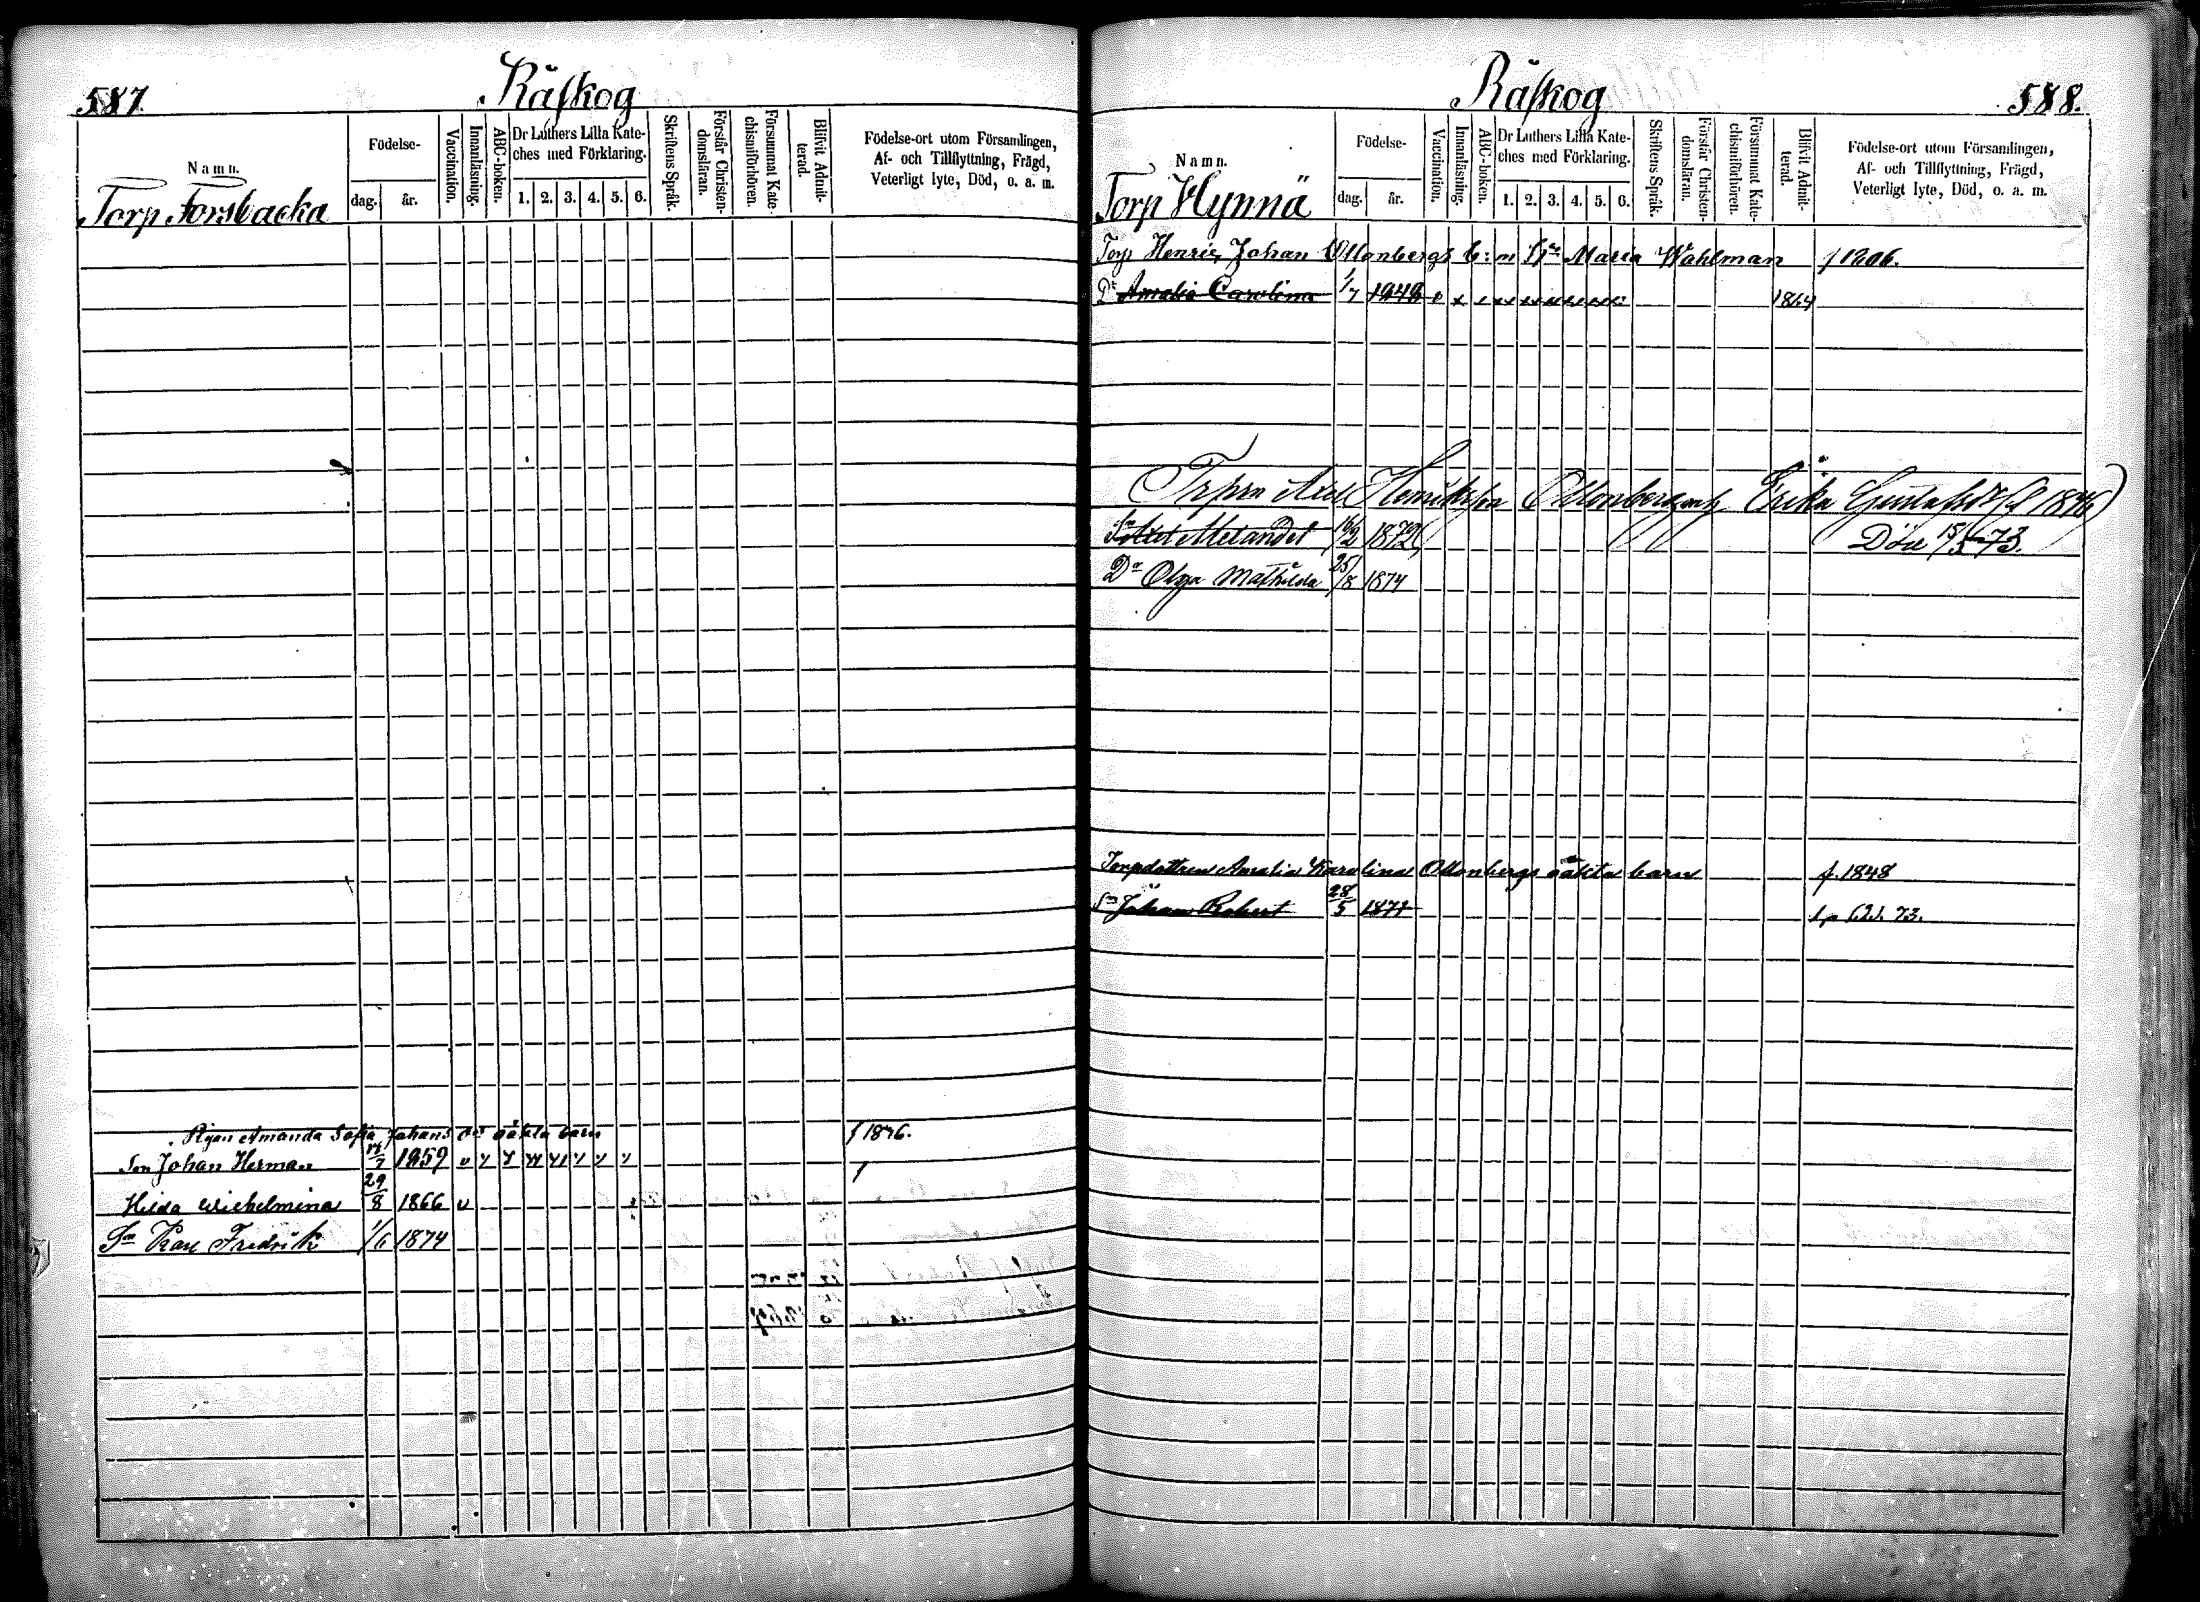 587.
Råskog
Namn.
Födelse-
dag.
år.
Vaccination.
Innanläsning.
ABC-boken.
Dr Luthers Lilla Kate-
ches med Förklaring.
1. 2. 3. 4. 5. 6.
Skriftens Språk.
Förstår Christen-
domsläran.
Försummat Kate-
chismiförhören.
Blifvit Admit-
terad.
Födelse-ort utom Församlingen,
Af- och Tillflyttning, Frägd,
Veterligt lyte, Död, o. a. m.
Torp Forsbacka
Pigan Amanda Sofia Johans dr oäkta barn f 1846.
Son Johan Herman 1859 v
Hilda Wilhelmina 29/8 1866 v
Sn Karl Fredrik 1/6 1874
Råskog
588.
Namn.
Födelse-
dag.
år.
Vaccination.
Innanläsning.
ABC-boken.
Dr Luthers Lilla Kate-
ches med Förklaring.
1. 2. 3. 4. 5. 6.
Skriftens Språk.
Förstår Christen-
domsläran.
Försummat Kate-
chismiförhören.
Blifvit Admit-
terad.
Födelse-ort utom Församlingen,
Af- och Tillflyttning, Frägd,
Veterligt lyte, Död, o. a. m.
Torp Hynnä
Torp Henric Johan Ollonbergs b:n Maria Wahlman f 1806.
Dr Amalia Carolina 1/7 1848 v 1864
Axel Henriksson Ollonberg Erika Gustafsdr 1846
Sn Axel Melander 16/2 1872 Död 15/5 73.
Dr Olga Mathilda 25/8 1874
Torpdottren Amalia Karolina Ollonbergs oäkta barn f. 1848
Sn Johan Robert 28/5 1871 73.